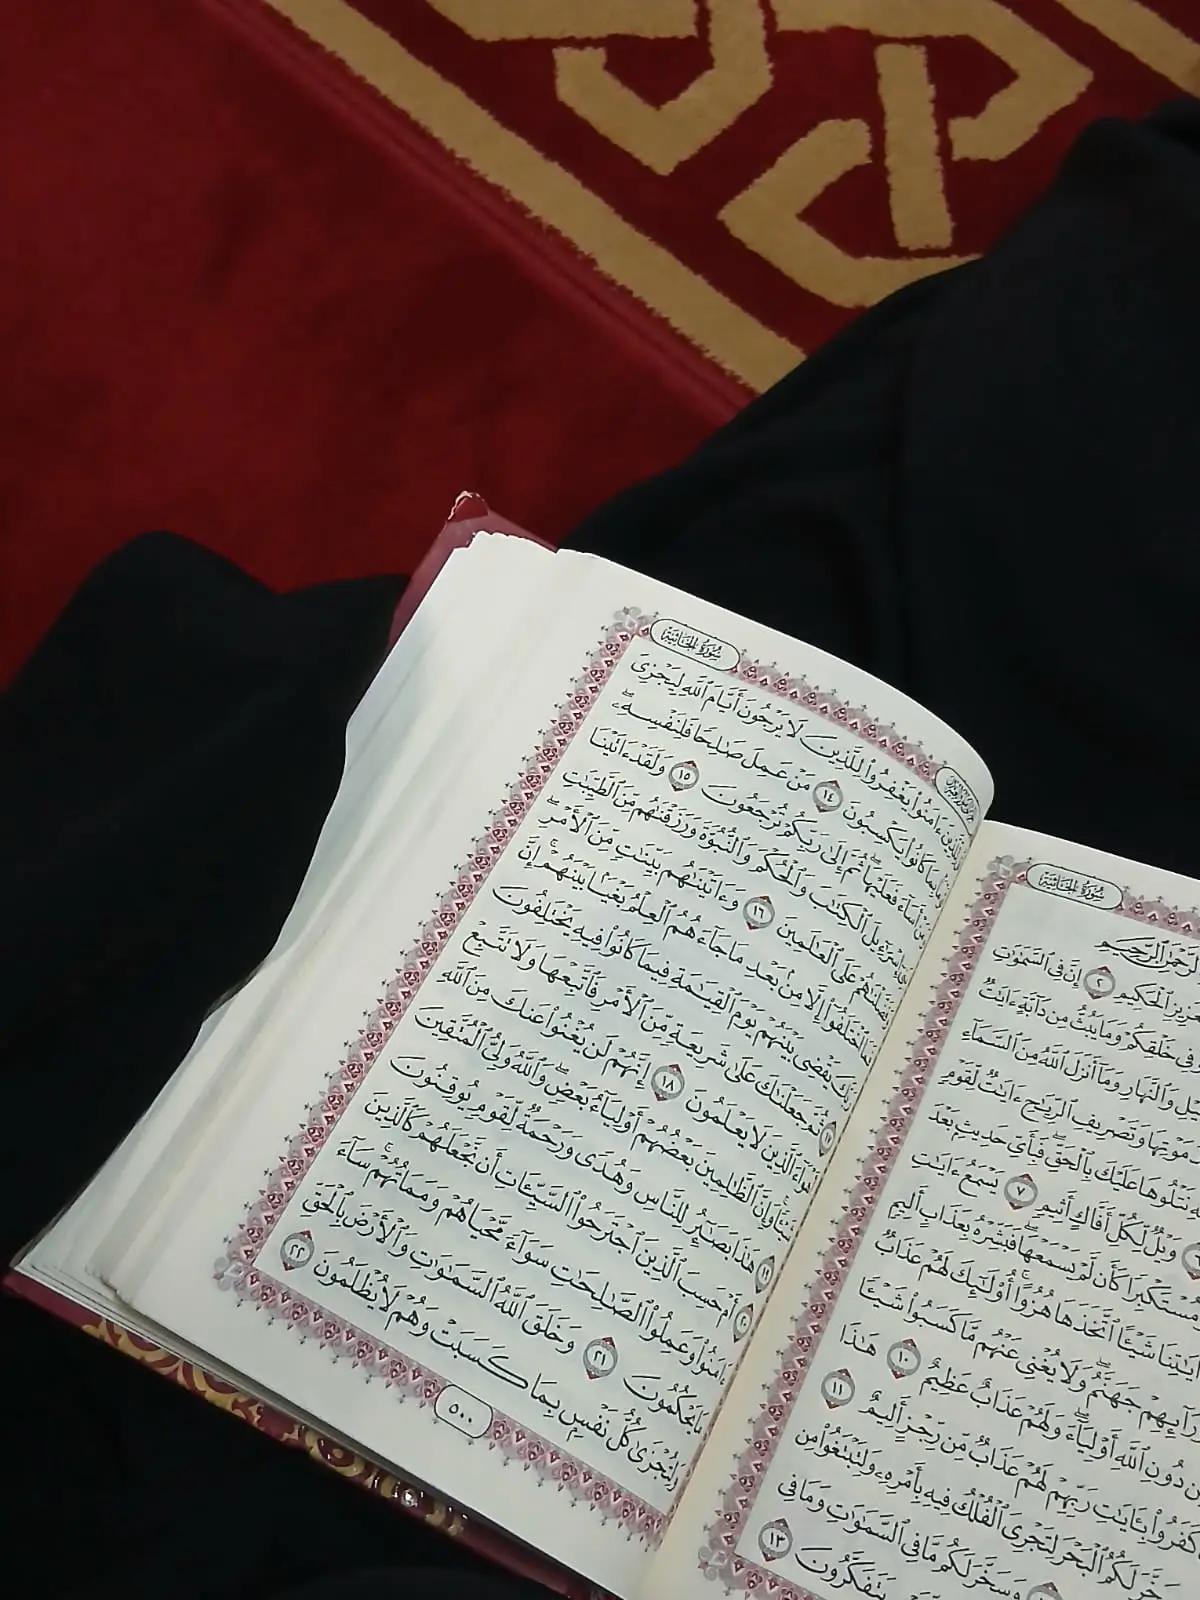 سُورَةُ الجَاثِيَةِ
إِنَّ فِي ٱلسَّمَٰوَٰتِ
وَفِي خَلْقِكُمْ وَمَا يَبُثُّ مِن دَآبَّةٍ ءَايَٰتٌ
وَٱلنَّهَارِ وَمَآ أَنزَلَ ٱللَّهُ مِنَ ٱلسَّمَآءِ
مَوْتِهَا وَتَصْرِيفِ ٱلرِّيَٰحِ ءَايَٰتٌ لِّقَوْمٍ
نَتْلُوهَا عَلَيْكَ بِٱلْحَقِّ فَبِأَيِّ حَدِيثٍۭ بَعْدَ
وَيْلٌ لِّكُلِّ أَفَّاكٍ أَثِيمٍ ٧ يَسْمَعُ ءَايَٰتِ
مُسْتَكْبِرًا كَأَن لَّمْ يَسْمَعْهَا فَبَشِّرْهُ بِعَذَابٍ أَلِيمٍ
ءَايَٰتِنَا شَيْـًٔا ٱتَّخَذَهَا هُزُوًا أُو۟لَٰٓئِكَ لَهُمْ عَذَابٌ
وَرَآئِهِمْ جَهَنَّمُ وَلَا يُغْنِي عَنْهُم مَّا كَسَبُوا۟ شَيْـًٔا
دُونِ ٱللَّهِ أَوْلِيَآءَ وَلَهُمْ عَذَابٌ عَظِيمٌ ١٠ هَٰذَا
كَفَرُوا۟ بِـَٔايَٰتِ رَبِّهِمْ لَهُمْ عَذَابٌ مِّن رِّجْزٍ أَلِيمٌ ١١
سَخَّرَ لَكُمُ ٱلْبَحْرَ لِتَجْرِيَ ٱلْفُلْكُ فِيهِ بِأَمْرِهِۦ وَلِتَبْتَغُوا۟ مِن
وَسَخَّرَ لَكُم مَّا فِي ٱلسَّمَٰوَٰتِ وَمَا فِي
يَتَفَكَّرُونَ ١٣
سُورَةُ الجَاثِيَةِ
لِّلَّذِينَ ءَامَنُوا۟ يَغْفِرُوا۟ لِلَّذِينَ لَا يَرْجُونَ أَيَّامَ ٱللَّهِ لِيَجْزِيَ
بِمَا كَانُوا۟ يَكْسِبُونَ ١٤ مَنْ عَمِلَ صَٰلِحًا فَلِنَفْسِهِۦ
وَمَنْ أَسَآءَ فَعَلَيْهَا ثُمَّ إِلَىٰ رَبِّكُمْ تُرْجَعُونَ ١٥ وَلَقَدْ ءَاتَيْنَا
بَنِيٓ إِسْرَٰٓءِيلَ ٱلْكِتَٰبَ وَٱلْحُكْمَ وَٱلنُّبُوَّةَ وَرَزَقْنَٰهُم مِّنَ ٱلطَّيِّبَٰتِ
وَفَضَّلْنَٰهُمْ عَلَى ٱلْعَٰلَمِينَ ١٦ وَءَاتَيْنَٰهُم بَيِّنَٰتٍ مِّنَ ٱلْأَمْرِ
فَمَا ٱخْتَلَفُوٓا۟ إِلَّا مِنۢ بَعْدِ مَا جَآءَهُمُ ٱلْعِلْمُ بَغْيًۢا بَيْنَهُمْ إِنَّ
رَبَّكَ يَقْضِي بَيْنَهُمْ يَوْمَ ٱلْقِيَٰمَةِ فِيمَا كَانُوا۟ فِيهِ يَخْتَلِفُونَ
١٧ ثُمَّ جَعَلْنَٰكَ عَلَىٰ شَرِيعَةٍ مِّنَ ٱلْأَمْرِ فَٱتَّبِعْهَا وَلَا تَتَّبِعْ
أَهْوَآءَ ٱلَّذِينَ لَا يَعْلَمُونَ ١٨ إِنَّهُمْ لَن يُغْنُوا۟ عَنكَ مِنَ ٱللَّهِ
شَيْـًٔا وَإِنَّ ٱلظَّٰلِمِينَ بَعْضُهُمْ أَوْلِيَآءُ بَعْضٍ وَٱللَّهُ وَلِيُّ ٱلْمُتَّقِينَ
١٩ هَٰذَا بَصَٰٓئِرُ لِلنَّاسِ وَهُدًى وَرَحْمَةٌ لِّقَوْمٍ يُوقِنُونَ
٢٠ أَمْ حَسِبَ ٱلَّذِينَ ٱجْتَرَحُوا۟ ٱلسَّيِّـَٔاتِ أَن نَّجْعَلَهُمْ كَٱلَّذِينَ
ءَامَنُوا۟ وَعَمِلُوا۟ ٱلصَّٰلِحَٰتِ سَوَآءً مَّحْيَاهُمْ وَمَمَاتُهُمْ سَآءَ
مَا يَحْكُمُونَ ٢١ وَخَلَقَ ٱللَّهُ ٱلسَّمَٰوَٰتِ وَٱلْأَرْضَ بِٱلْحَقِّ
وَلِتُجْزَىٰ كُلُّ نَفْسٍۭ بِمَا كَسَبَتْ وَهُمْ لَا يُظْلَمُونَ ٢٢
٥٠٠